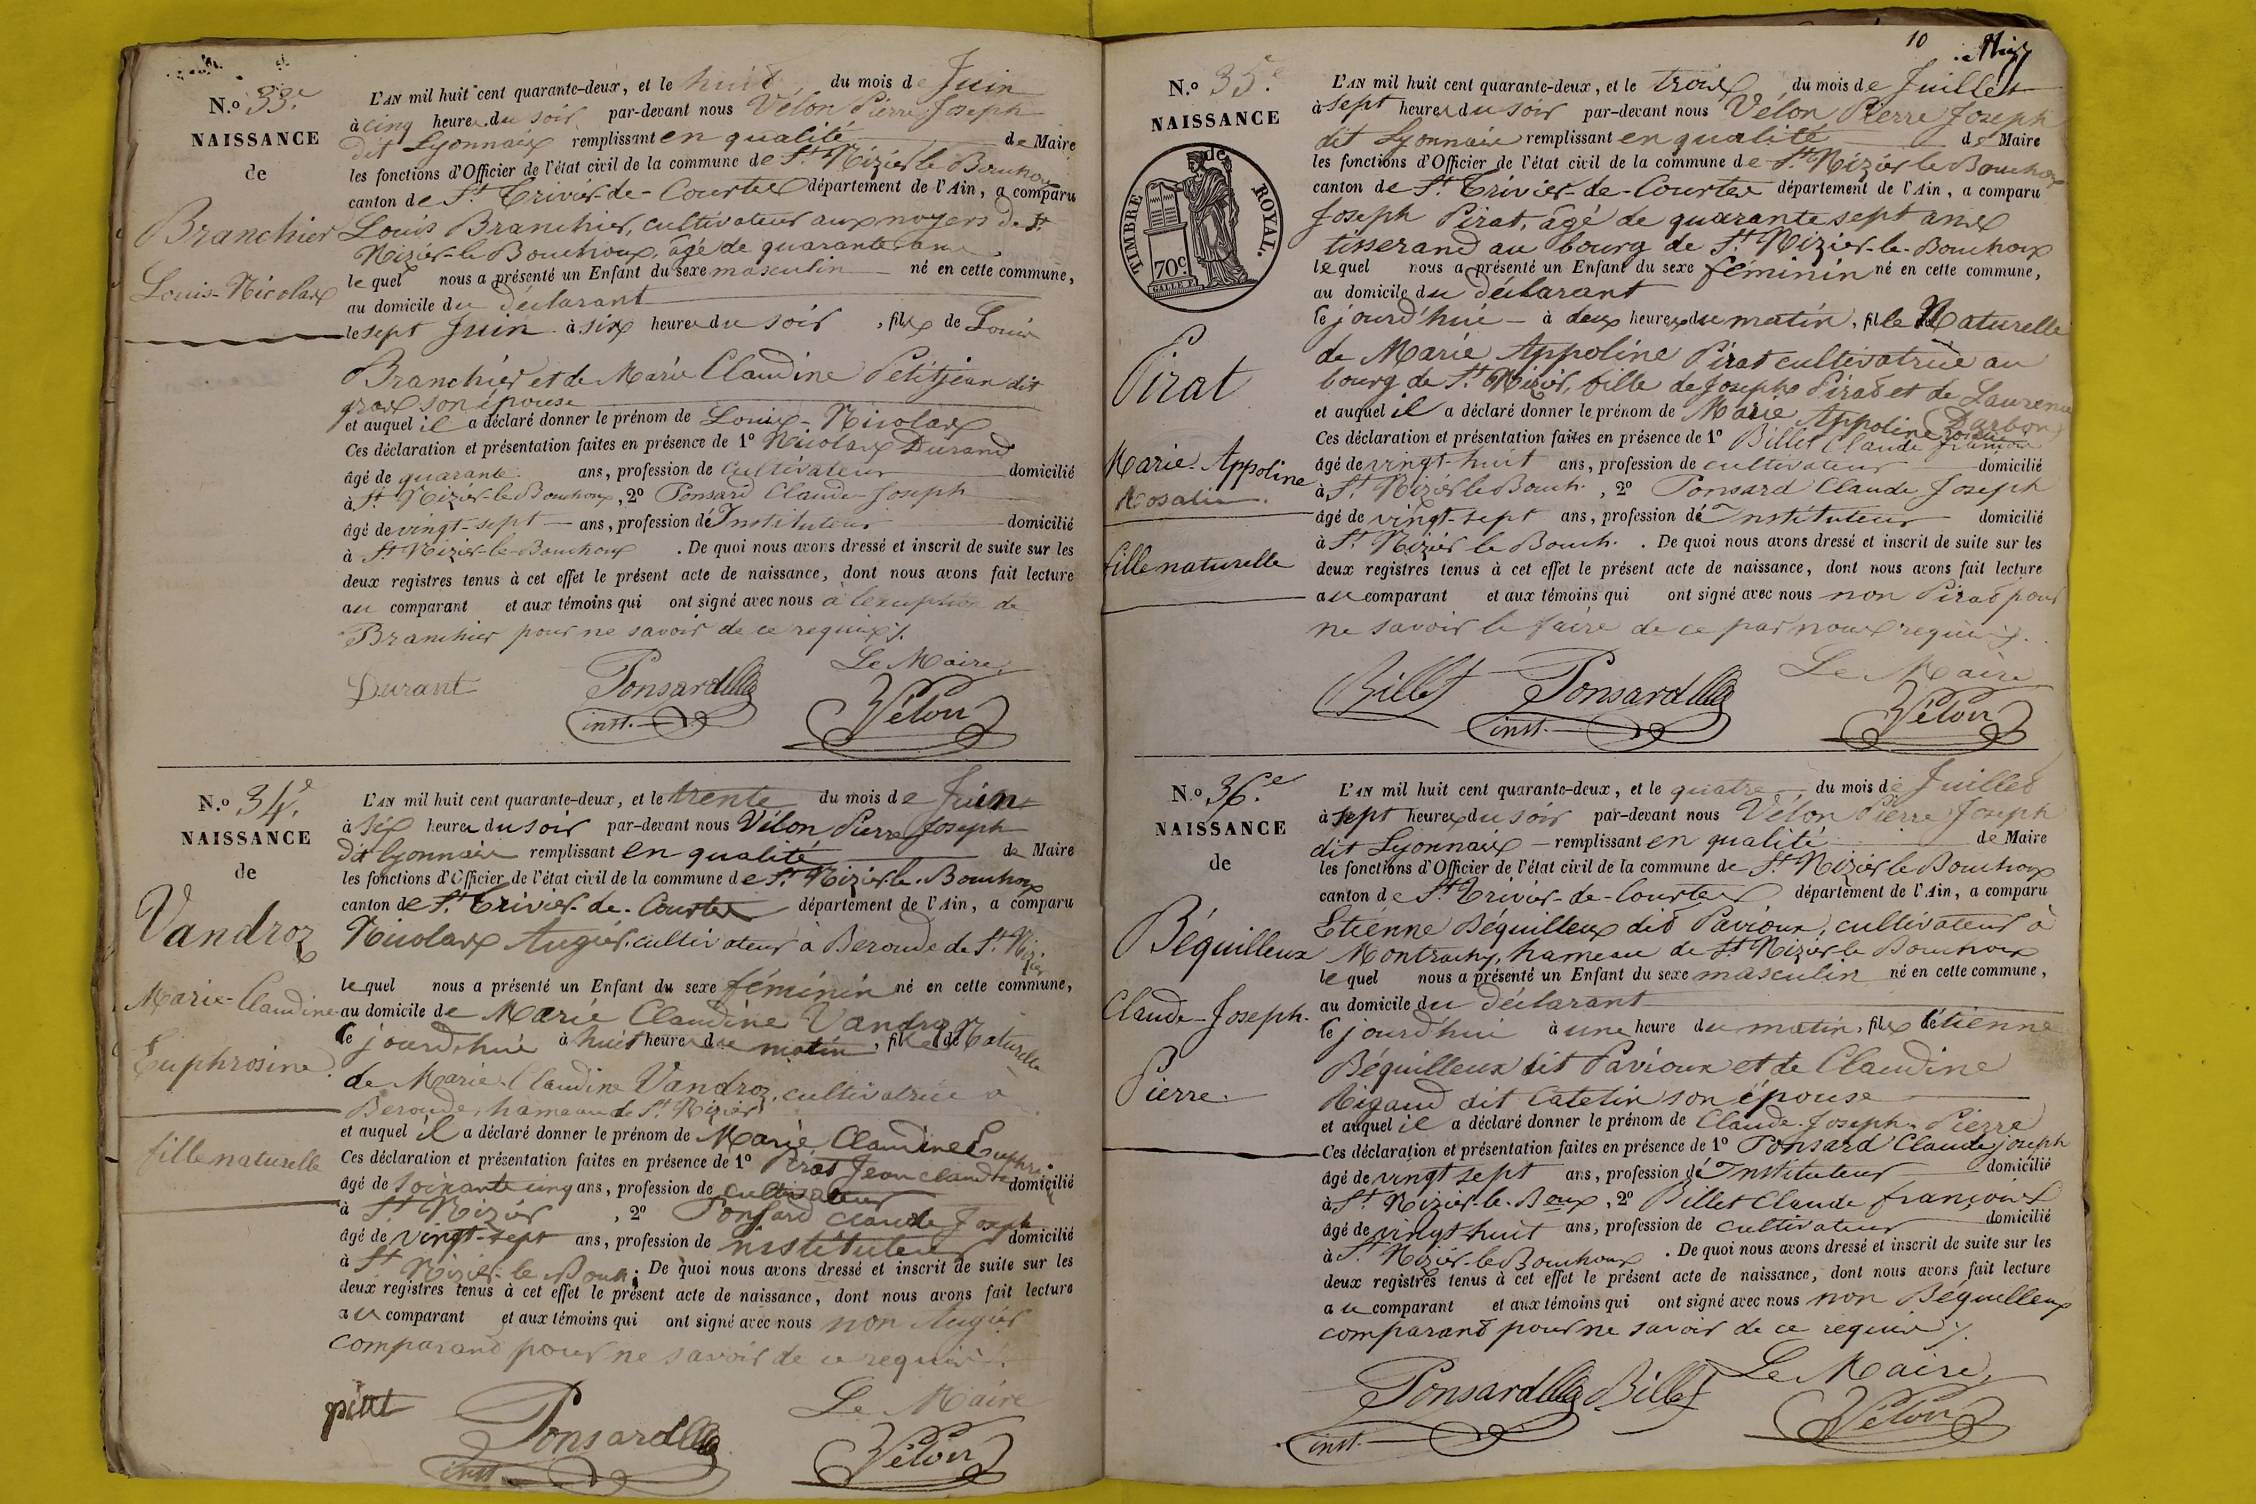 N.o 33.e
NAISSANCE
de
Branchier
Louis-Nicolas
L'AN mil huit cent quarante-deux, et le huit, du mois de Juin
à cinq heures du soir par-devant nous Vélon Pierre Joseph
dit Lyonnais remplissant en qualité de Maire
les fonctions d'Officier de l'état civil de la commune de St Nizier le Bouhoux
canton de St Trivier-de-Courtes département de l'Ain, a comparu
Louis Branchier, cultivateur aux noyers de St
Nizier-le Bouchoux, âgé de quarante ans
lequel nous a présenté un Enfant du sexe masculin né en cette commune,
au domicile du déclarant
le sept Juin à six heures du soir, fils de Louis
Branchier et de Marie Claudine Petitjean dit
gros son épouse
et auquel il a déclaré donner le prénom de Louis-Nicolas
Ces déclaration et présentation faites en présence de 1o Nicolas Durand
âgé de quarante ans, profession de cultivateur domicilié
à St Nizier-le Bouchoux, 2o Ponsard Claude Joseph
âgé de vingt-sept ans, profession d'Instituteur domicilié
à St Nizier-le-Bouchoux. De quoi nous avons dressé et inscrit de suite sur les
deux registres tenus à cet effet le présent acte de naissance, dont nous avons fait lecture
au comparant et aux témoins qui ont signé avec nous à l'exception de
Branchier pour ne savoir de ce requis ./.
Le Maire
Durant Ponsard Vélon
inst.
N.o 34.e
NAISSANCE
de
Vandroz
Marie-Claudine
Euphrosine
fille naturelle
L'AN mil huit cent quarante-deux, et le trente du mois de Juin
à six heures du soir par-devant nous Vélon Pierre Joseph
dit lyonnais remplissant en qualité de Maire
les fonctions d'Officier de l'état civil de la commune de St Nizier le Bouchoux
canton de St Trivier-de-Courtes département de l'Ain, a comparu
Nicolas Augier, cultivateur à Beroude de St Nizier
lequel nous a présenté un Enfant du sexe féminin né en cette commune,
au domicile de Marie Claudine Vandroz
le jourd'hui à huit heures du matin, fille Naturelle
de Marie Claudine Vandroz, cultivatrice à
Beroude, hameau de St Nizier
et auquel il a déclaré donner le prénom de Marie Claudine Euphro.
Ces déclaration et présentation faites en présence de 1o Pirat Jean claude
âgé de soixante cinq ans, profession de cultivateur domicilié
à St Nizier, 2o Ponsard Claude Joseph
âgé de vingt-sept ans, profession de nstituteur domicilié
à St Nizier le Bouh. De quoi nous avons dressé et inscrit de suite sur les
deux registres tenus à cet effet le présent acte de naissance, dont nous avons fait lecture
au comparant et aux témoins qui ont signé avec nous non Augier
comparant pour ne savoir de ce requis ./.
Le Maire
Ponsard Vélon
inst.
10
N.o 35.e
NAISSANCE
de
TIMBRE ROYAL.
70c
Pirat
Marie-Appoline
Rosalie
fille naturelle
L'AN mil huit cent quarante-deux, et le trois du mois de Juillet
à sept heures du soir par-devant nous Vélon Pierre Joseph
dit Lyonnais remplissant en qualité de Maire
les fonctions d'Officier de l'état civil de la commune de St Nizier le Bouchoux
canton de St Trivier-de-Courtes département de l'Ain, a comparu
Joseph Pirat, âgé de quarante sept ans
tisserand au bourg de St Nizier-le-Bouchoux
lequel nous a présenté un Enfant du sexe féminin né en cette commune,
au domicile du déclarant
le jourd'hui à deux heures du matin, fille Naturelle
de Marie Appoline Pirat cultivatrice au
bourg de St Nizier, fille de Joseph Pirat et de Laurence
Darbon
et auquel il a déclaré donner le prénom de Marie Appoline Rosalie
Ces déclaration et présentation faites en présence de 1o Billet Claude françois
âgé de vingt-huit ans, profession de cultivateur domicilié
à St Nizier le Bouch., 2o Ponsard Claude Joseph
âgé de vingt-sept ans, profession d'Instituteur domicilié
à St Nizier le Bouch. De quoi nous avons dressé et inscrit de suite sur les
deux registres tenus à cet effet le présent acte de naissance, dont nous avons fait lecture
au comparant et aux témoins qui ont signé avec nous non Pirat pour
ne savoir le faire de ce par nous requis ./.
Le Maire
Billet Ponsard Vélon
inst.
N.o 36.e
NAISSANCE
de
Béquilleux
Claude-Joseph-
Pierre.
L'AN mil huit cent quarante-deux, et le quatre du mois de Juillet
à sept heures du soir par-devant nous Vélon Pierre Joseph
dit Lyonnais remplissant en qualité de Maire
les fonctions d'Officier de l'état civil de la commune de St Nizier le Bouchoux
canton de St Trivier-de-Courtes département de l'Ain, a comparu
Etienne Béquilleux dit Pavioux, cultivateur à
Montrachy, hameau de St Nizier le Bouchoux
lequel nous a présenté un Enfant du sexe masculin né en cette commune,
au domicile du déclarant
le jourd'hui à une heure du matin, fils d'étienne
Béquilleux dit Pavioux et de Claudine
Rigaud dit Catelin son épouse
et auquel il a déclaré donner le prénom de Claude-Joseph-Pierre
Ces déclaration et présentation faites en présence de 1o Ponsard Claude joseph
âgé de vingt sept ans, profession d'Instituteur domicilié
à St Nizier-le-Boux, 2o Billet Claude françois
âgé de vingt huit ans, profession de cultivateur domicilié
à St Nizier-le Bouchoux. De quoi nous avons dressé et inscrit de suite sur les
deux registres tenus à cet effet le présent acte de naissance, dont nous avons fait lecture
au comparant et aux témoins qui ont signé avec nous non Béquilleux
comparant pour ne savoir de ce requis ./.
Le Maire
Ponsard Billet Vélon
inst.